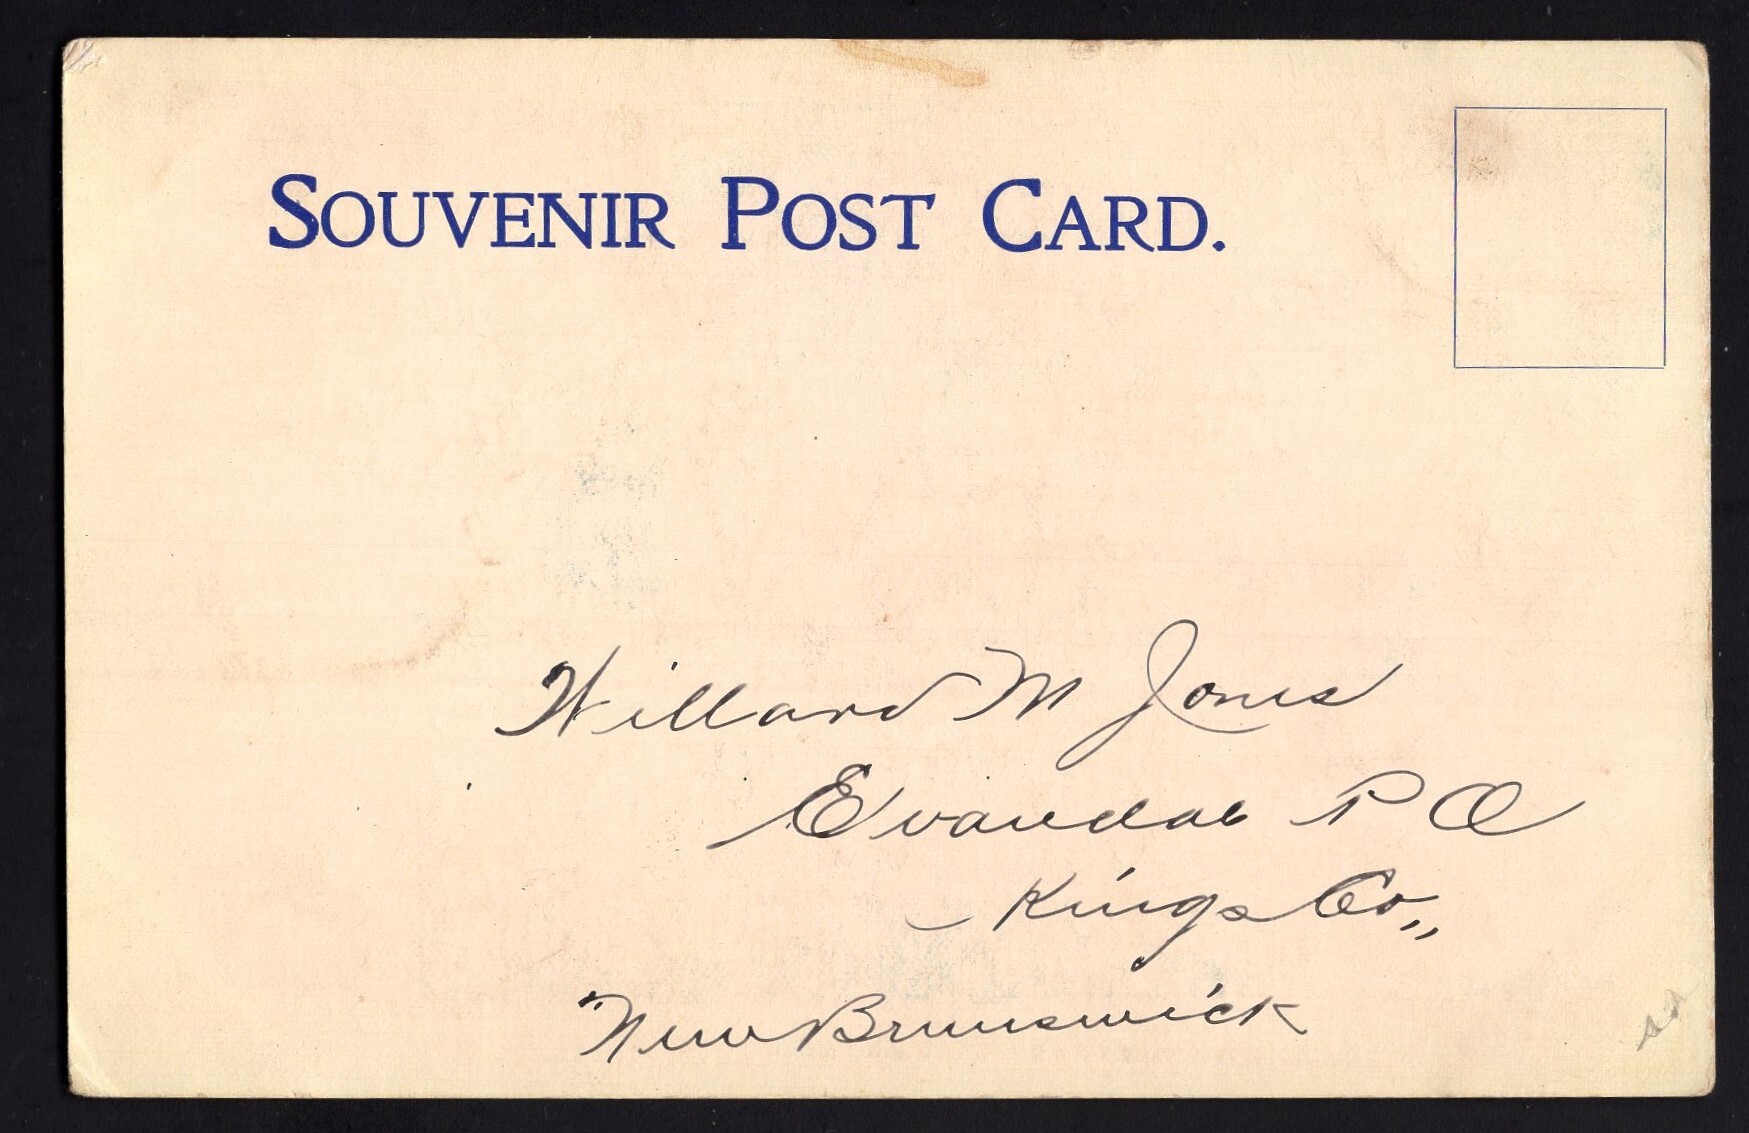 SOUVENIR POST CARD.
Willard M Jones
Evandale P O
Kings Co.,,
New Brunswick